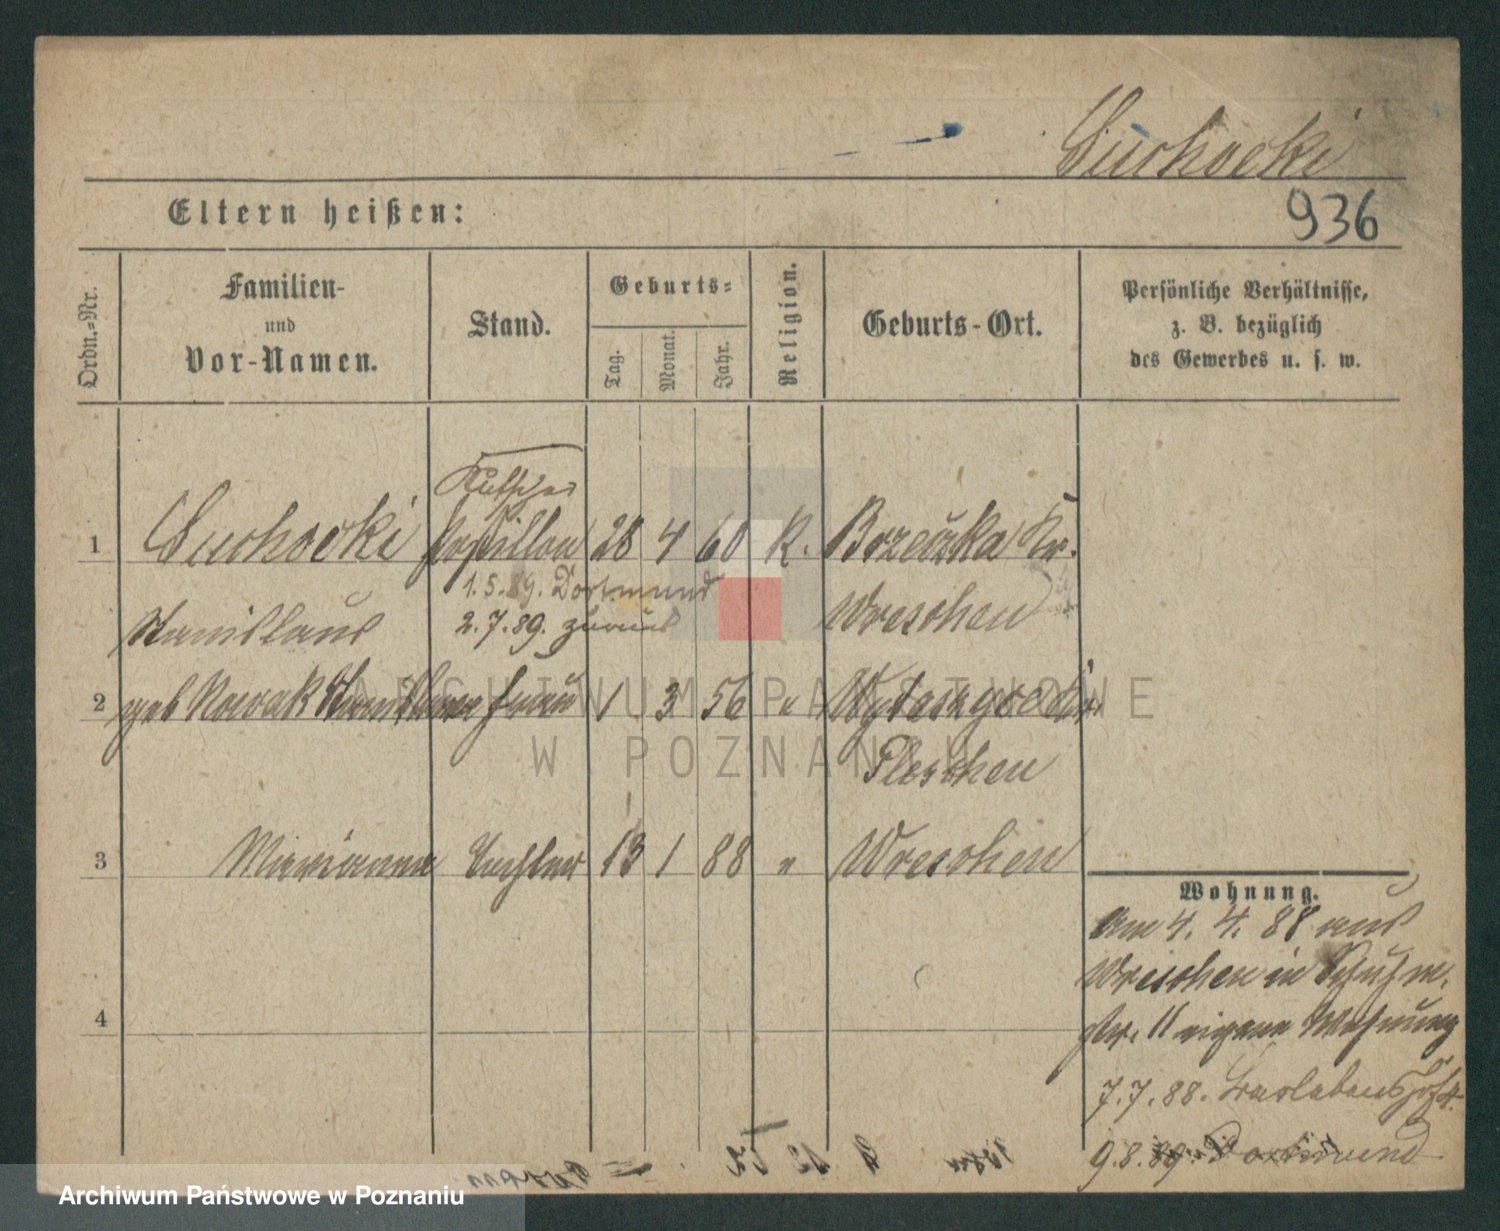 Suchocki
Eltern heißen:
936
Ordn.-Nr.
Familien-
und
Vor-Namen.
Stand.
Geburts-
Tag.
Monat.
Jahr.
Religion.
Geburts-Ort.
Persönliche Verhältnisse,
z. B. bezüglich
des Gewerbes u. s. w.
Kutscher
1 Suchocki 28 4 60 K. Kr.
1.5.89. Dortmund
Stanislaus Wreschen
2.7.89. zurück
2 geb Nowak Frau 1 3 56 "
Pleschen
3 Marianna Tochter 13 1 88 " Wreschen
4
Wohnung.
Am 4. 4. 88 aus
Wreschen in Schuhm.
str. 11 eigene Wohnung
7.7.88.
9.8.89. Dortmund
ARCHIWUM PAŃSTWOWE
W POZNANIU
Archiwum Państwowe w Poznaniu